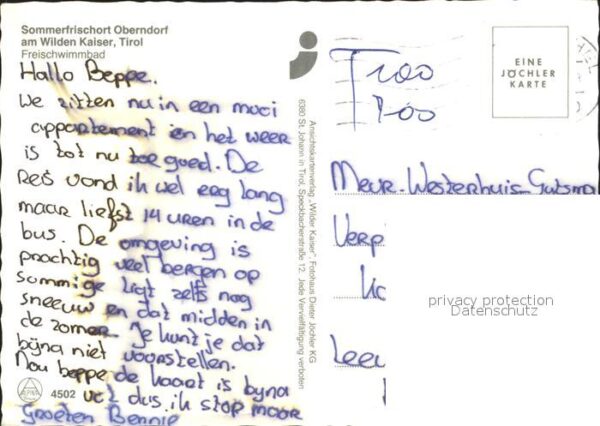 Sommerfrischort Oberndorf
am Wilden Kaiser, Tirol
Freischwimmbad
Hallo Beppe.
We zitten nu in een mooi
appartement en het weer
is tot nu toe goed. De
Reis vond ik wel erg lang
maar liefst 14 uren in de
bus. De omgeving is
prachtig veel bergen op
sommige ligt zelfs nog
sneeuw en dat midden in
de zomer. Je kunt je dat
bijna niet voorstellen.
Nou beppe de kaart is byna
vol dus ik stop maar
Groeten Bennie
4502
Ansichtskartenverlag „Wilder Kaiser", Fotohaus Dieter Jöchler KG
6380 St. Johann in Tirol, Speckbacherstraße 12. Jede Vervielfältigung verboten
EINE
JÖCHLER
KARTE
Mevr. Westerhuis-Gutsma
Verp
Lee
privacy protection
Datenschutz